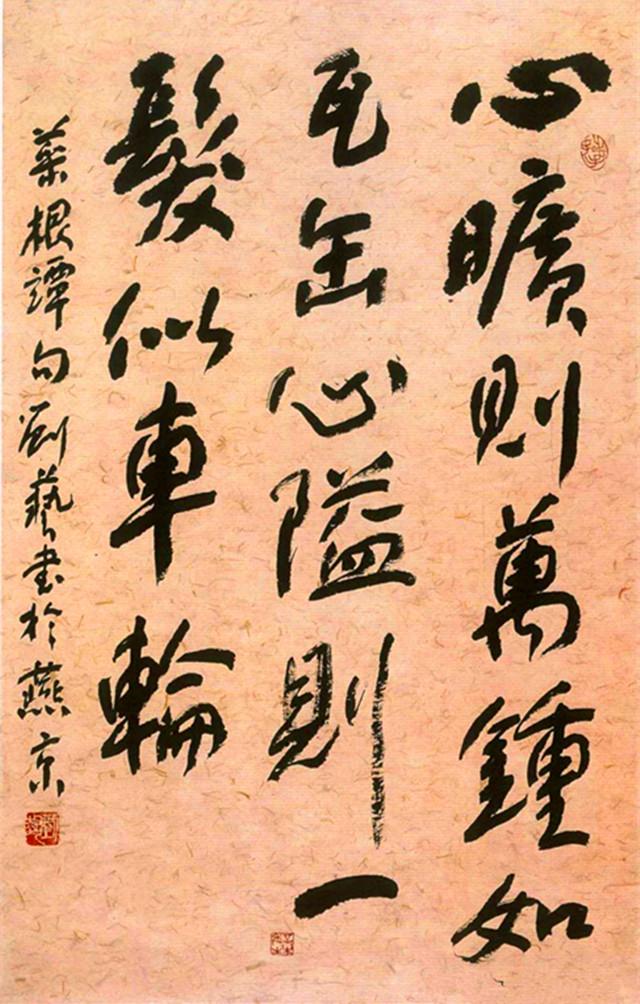 心曠則萬鍾如
瓦缶心隘則一
髮似車輪
菜根譚句劉藝書於燕京